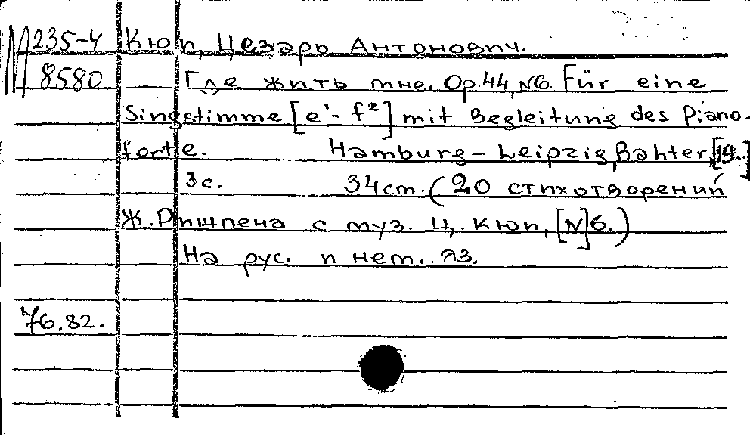 235-4 Кюи, Цезарь Антонович.
8580 Где жить мне. Op.44, №6. Für eine
Singstimme [e'- f²] mit Begleitung des Piano-
forte. Hamburg - Leipzig, Rahter, [19..]
3с. 34cm. (20 стихотворений
Ж. Ришпена с муз. Ц. Кюи, [№]6.)
На рус. и нем. яз.
76.82.